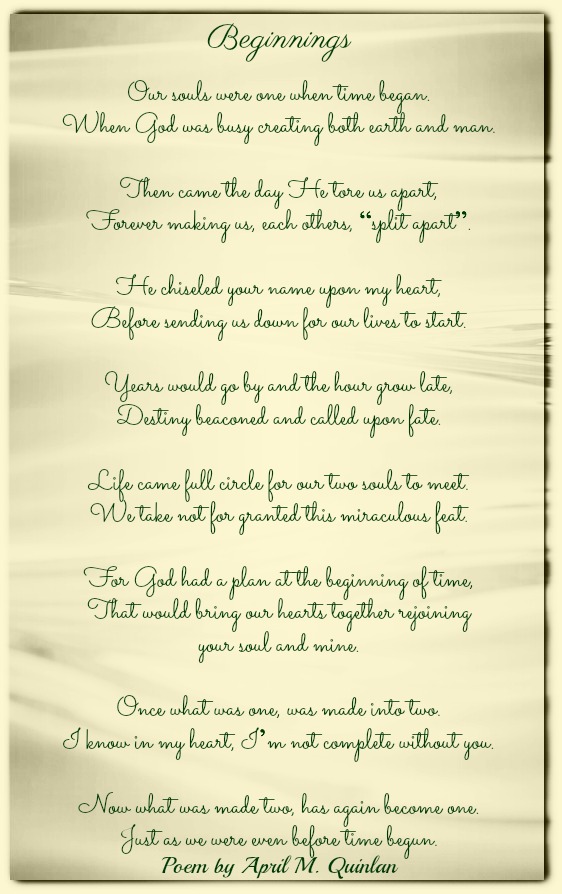 Beginnings
Our souls were one when time began.
When God was busy creating both earth and man.
Then came the day He tore us apart,
Forever making us, each others, “split apart”.
He chiseled your name upon my heart,
Before sending us down for our lives to start.
Years would go by and the hour grow late,
Destiny beaconed and called upon fate.
Life came full circle for our two souls to meet.
We take not for granted this miraculous feat.
For God had a plan at the beginning of time,
That would bring our hearts together rejoining
your soul and mine.
Once what was one, was made into two.
I know in my heart, I’m not complete without you.
Now what was made two, has again become one.
Just as we were even before time begun.
Poem by April M. Quinlan